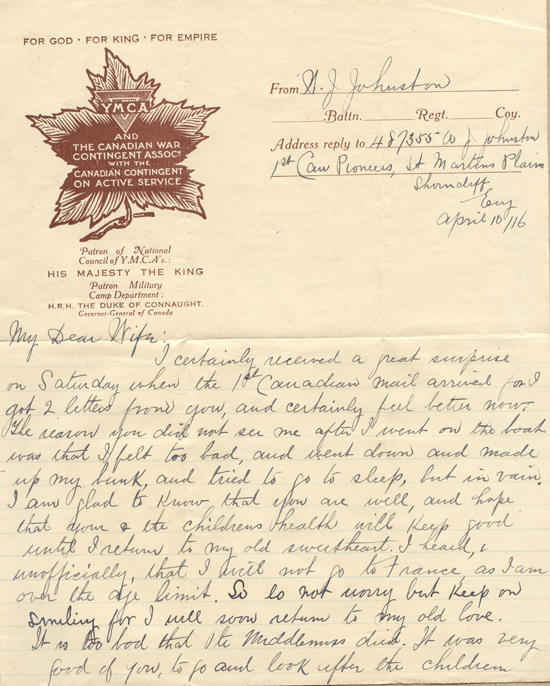 FOR GOD · FOR KING · FOR EMPIRE
YMCA
AND
THE CANADIAN WAR
CONTINGENT ASSOCN
WITH THE
CANADIAN CONTINGENT
ON ACTIVE SERVICE
Patron of National
Council of Y.M.C.A's.:
HIS MAJESTY THE KING
Patron Military
Camp Department:
H.R.H. THE DUKE OF CONNAUGHT.
Governor-General of Canada
From W. J. Johnston
Battn. Regt. Coy.
Address reply to 487355 W J Johnston
1st Can Pioneers, St Martins Plains
Shorncliff
Eng
April 10/16
My Dear Wife:
I certainly received a great surprise
on Saturday when the 1st Canadian mail arrived for I
got 2 letters from you, and certainly feel better now.
The reason you did not see me after I went on the boat
was that I felt too bad, and went down and made
up my bunk, and tried to go to sleep, but in vain.
I am glad to know that you are well, and hope
that your & the childrens health will keep good
until I return to my old sweetheart. I heard,
unofficially, that I will not go to France, as I am
over the age limit. So do not worry but keep on
smiling for I will soon return to my old love.
It is too bad that Pte Middlemiss died. It was very
good of you, to go and look after the children